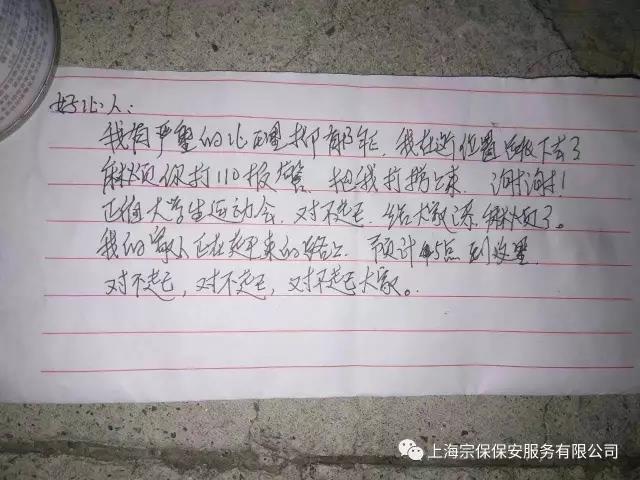 好心人：
我有严重的心理抑郁症，我在这位置跳下去了
麻烦你打110报警，把我打捞上来，谢谢！
正值大学生运动会，对不起，给大家添麻烦了。
我的家人正在赶来的路上，预计5点到这里
对不起，对不起，对不起大家。
上海宗保保安服务有限公司